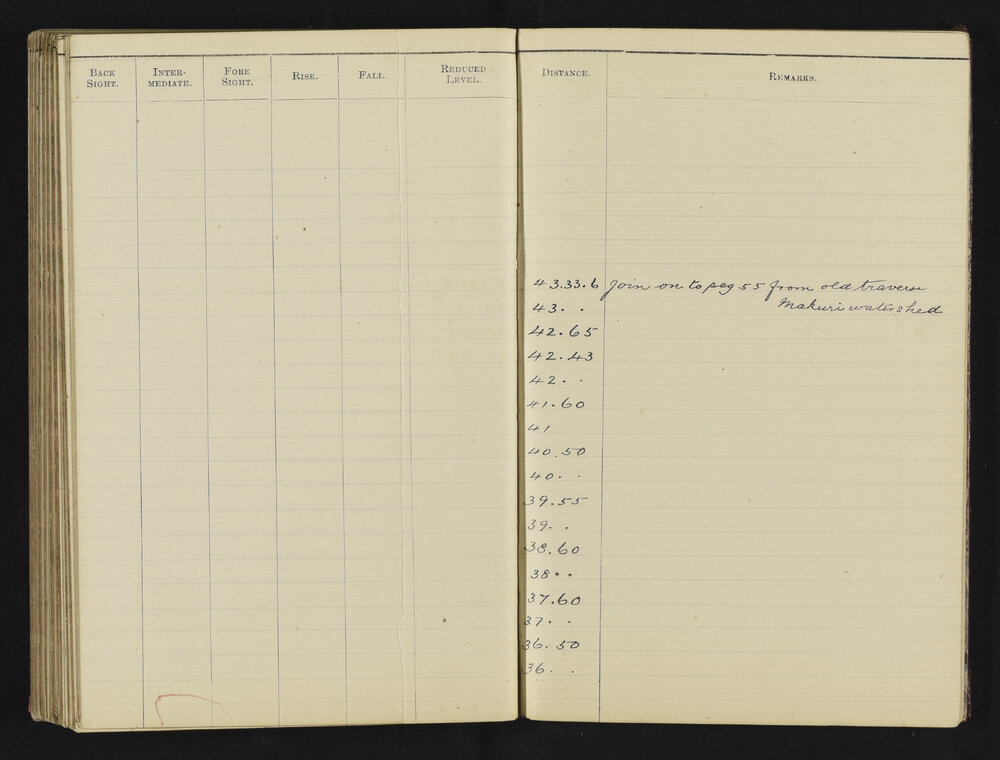 BACK SIGHT.
INTER-MEDIATE.
FORE SIGHT.
RISE.
FALL.
REDUCED LEVEL.
DISTANCE.
REMARKS.
43.33.6 Join on to peg 55 from old traverse
43. . Makuri watershed
42.65
42.43
42. .
41.60
41
40.50
40. .
39.55
39. .
38.60
38. .
37.60
37. .
36.50
36. .